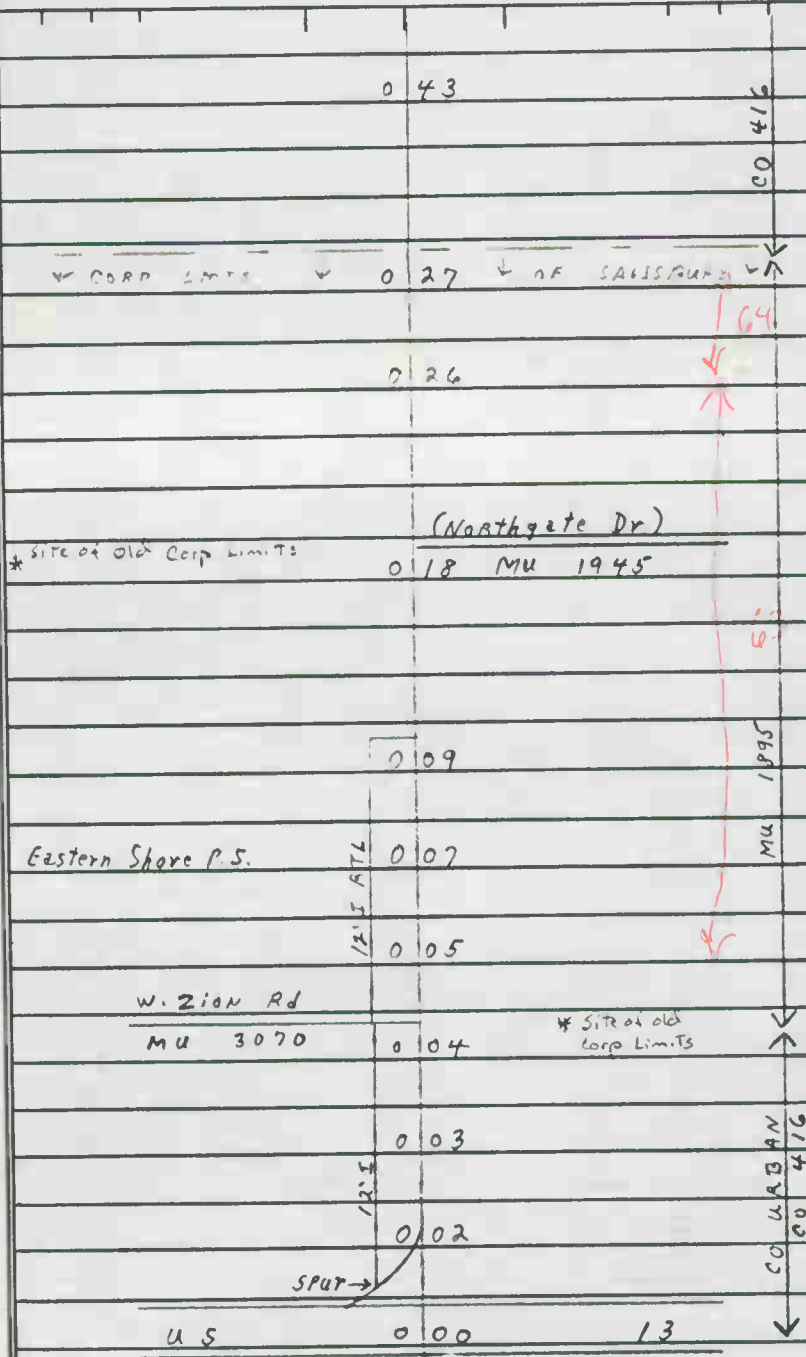 0 43
CO 416
CORP LMTS 0 27 OF SALISBURY
64
0 26
(Northgate Dr)
* Site of Old Corp Limits
0 18 MU 1945
0 09
MU 1895
Eastern Shore P.S. 0 07
12' I RTL
0 05
W. Zion Rd
MU 3070 0 04
* Site of old
Corp Limits
0 03
12' I
CO URBAN
CO 416
0 02
SPUR
US 0 00 13